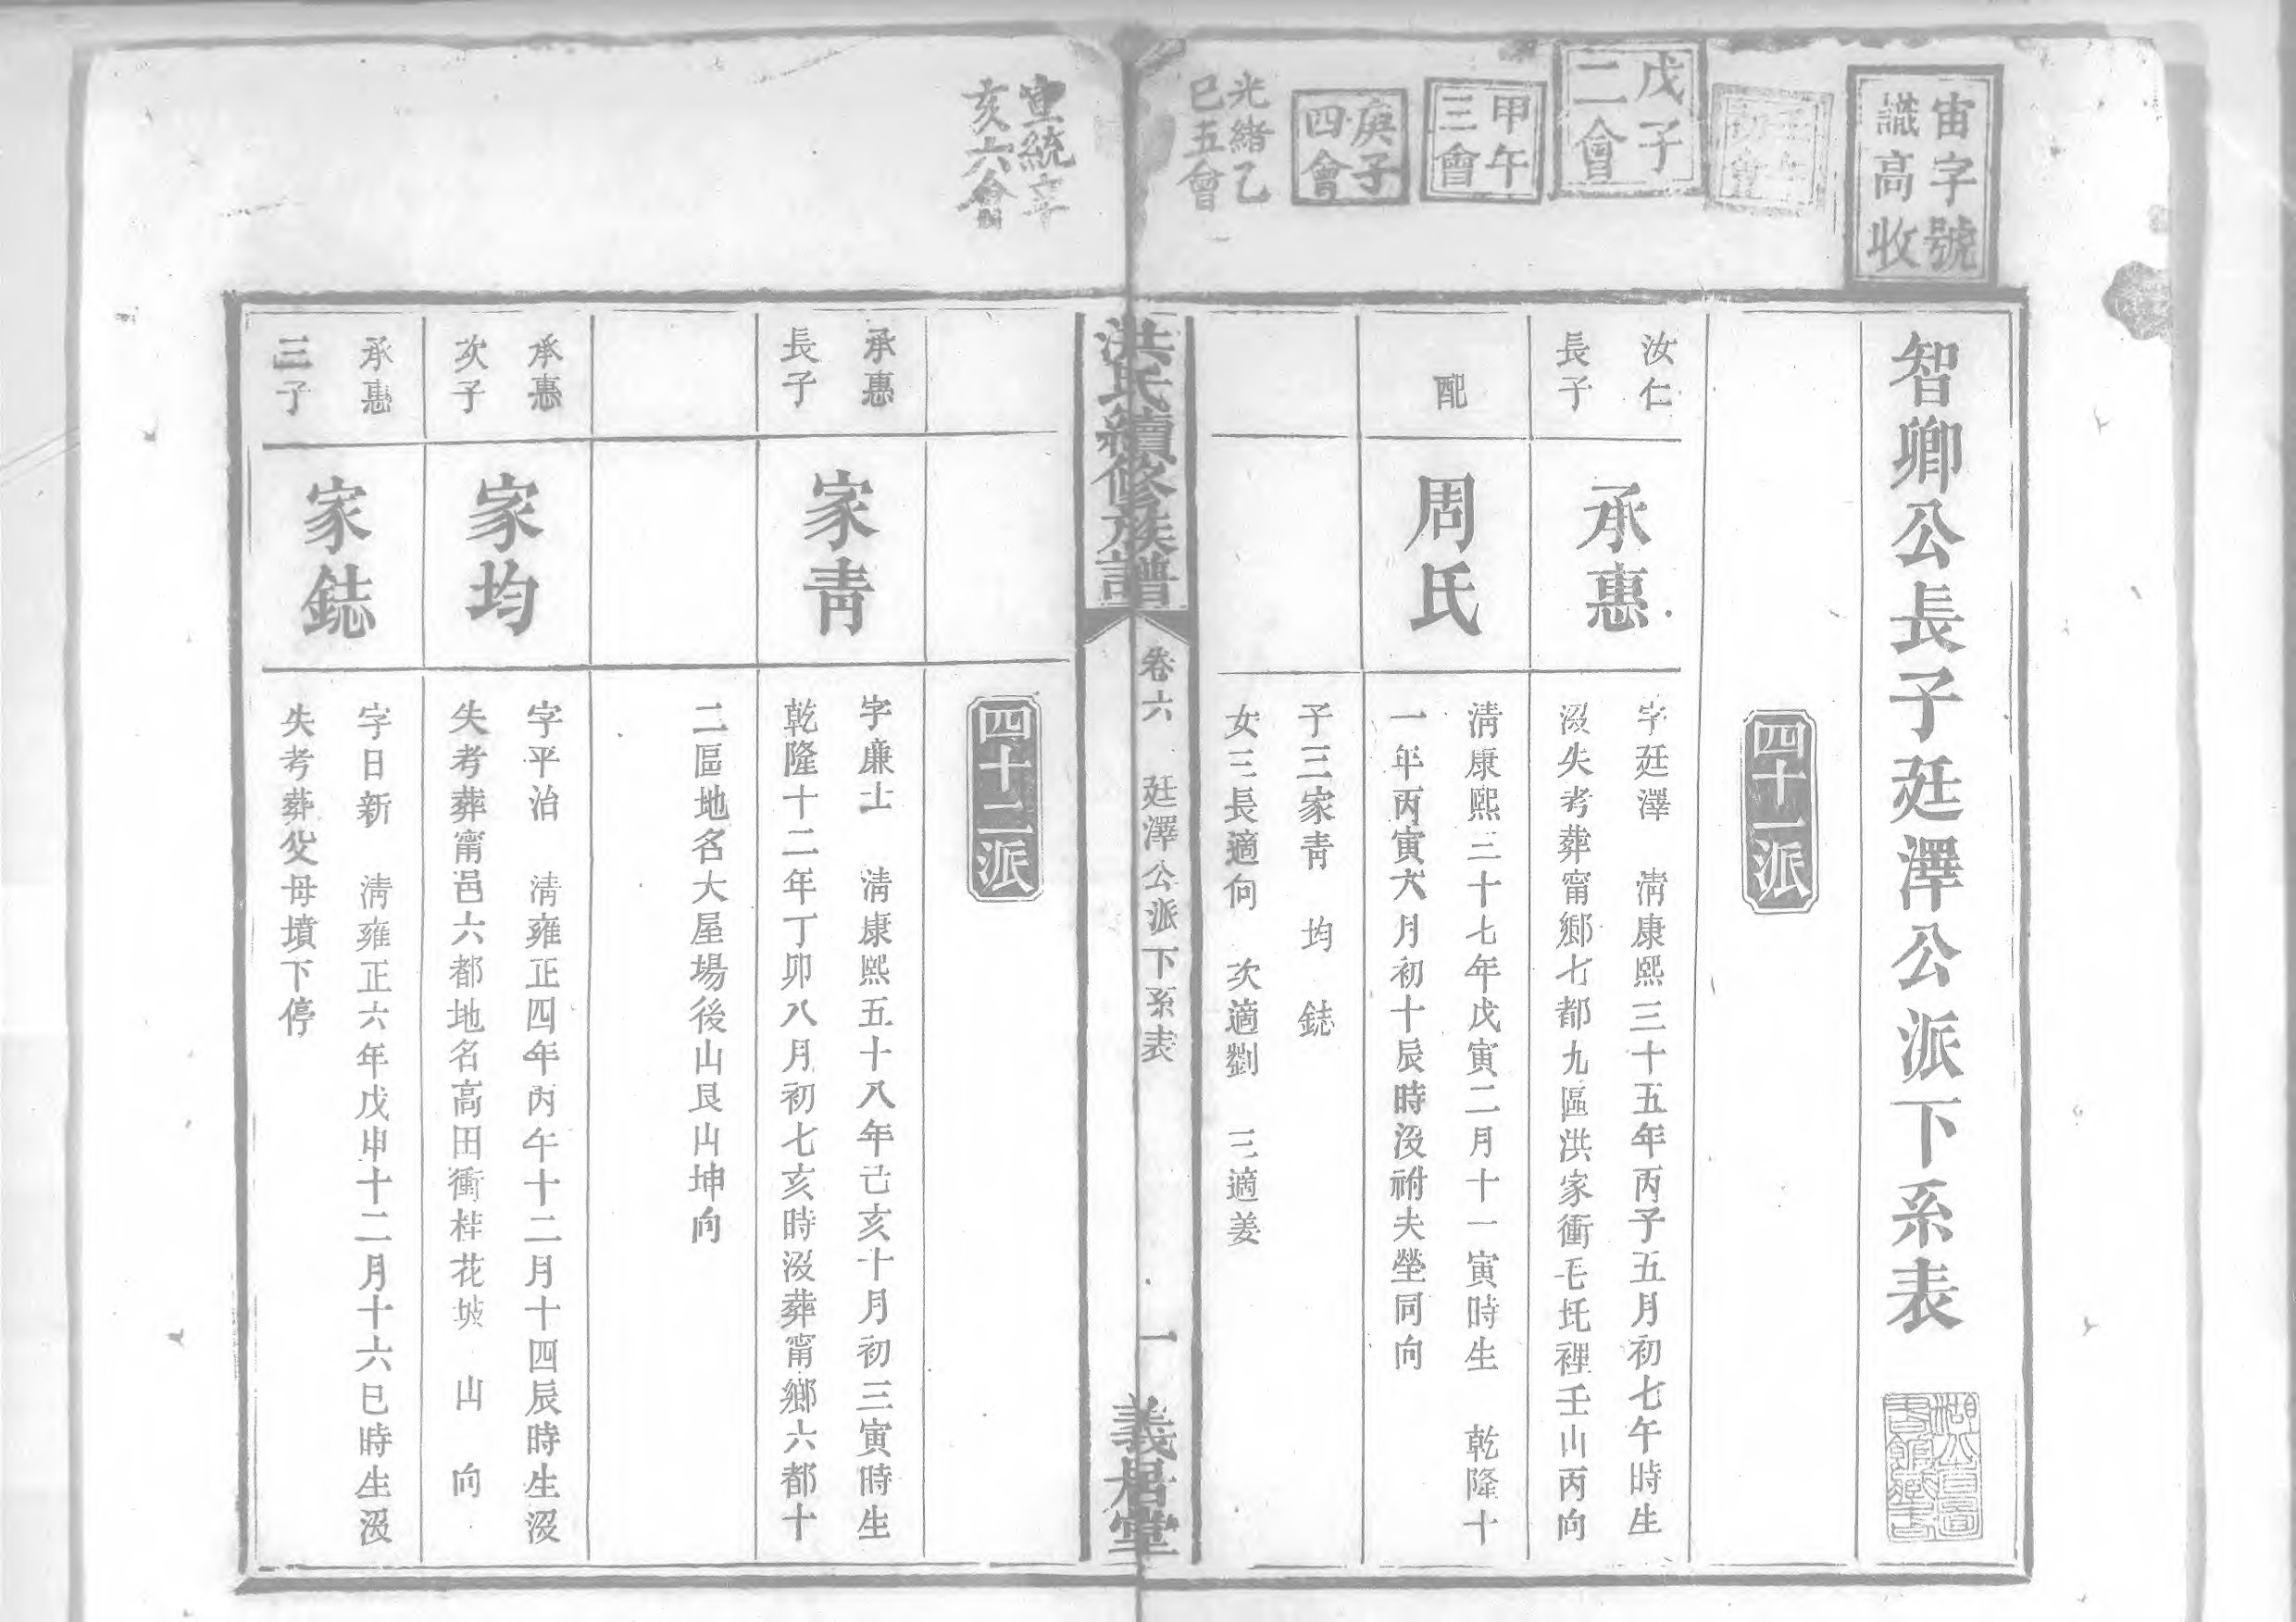 宙字號
識高收
戊子
二會
甲午
三會
庚子
四會
光緒乙
巳五會
宣統辛
亥六會
智卿公長子廷澤公派下系表
湖北省圖
書館藏書
四十一派
汝仁
長子
承惠
字廷澤　清康熙三十五年丙子五月初七午時生
沒失考葬甯鄉七都九區洪家衝毛坵裡壬山丙向
配
周氏
清康熙三十七年戊寅二月十一寅時生　乾隆十
一年丙寅六月初十辰時沒祔夫塋同向
子三家青　均　鋕
女三長適何　次適劉　三適姜
洪氏續修族譜
卷六　廷澤公派下系表
一
義居堂
四十二派
承惠
長子
家青
字廉士　清康熙五十八年己亥十月初三寅時生
乾隆十二年丁卯八月初七亥時沒葬甯鄉六都十
二區地名大屋場後山艮山坤向
承惠
次子
家均
字平治　清雍正四年丙午十二月十四辰時生沒
失考葬甯邑六都地名高田衝桂花坡　山　向
承惠
三子
家鋕
字日新　清雍正六年戊申十二月十六巳時生沒
失考葬父母墳下停